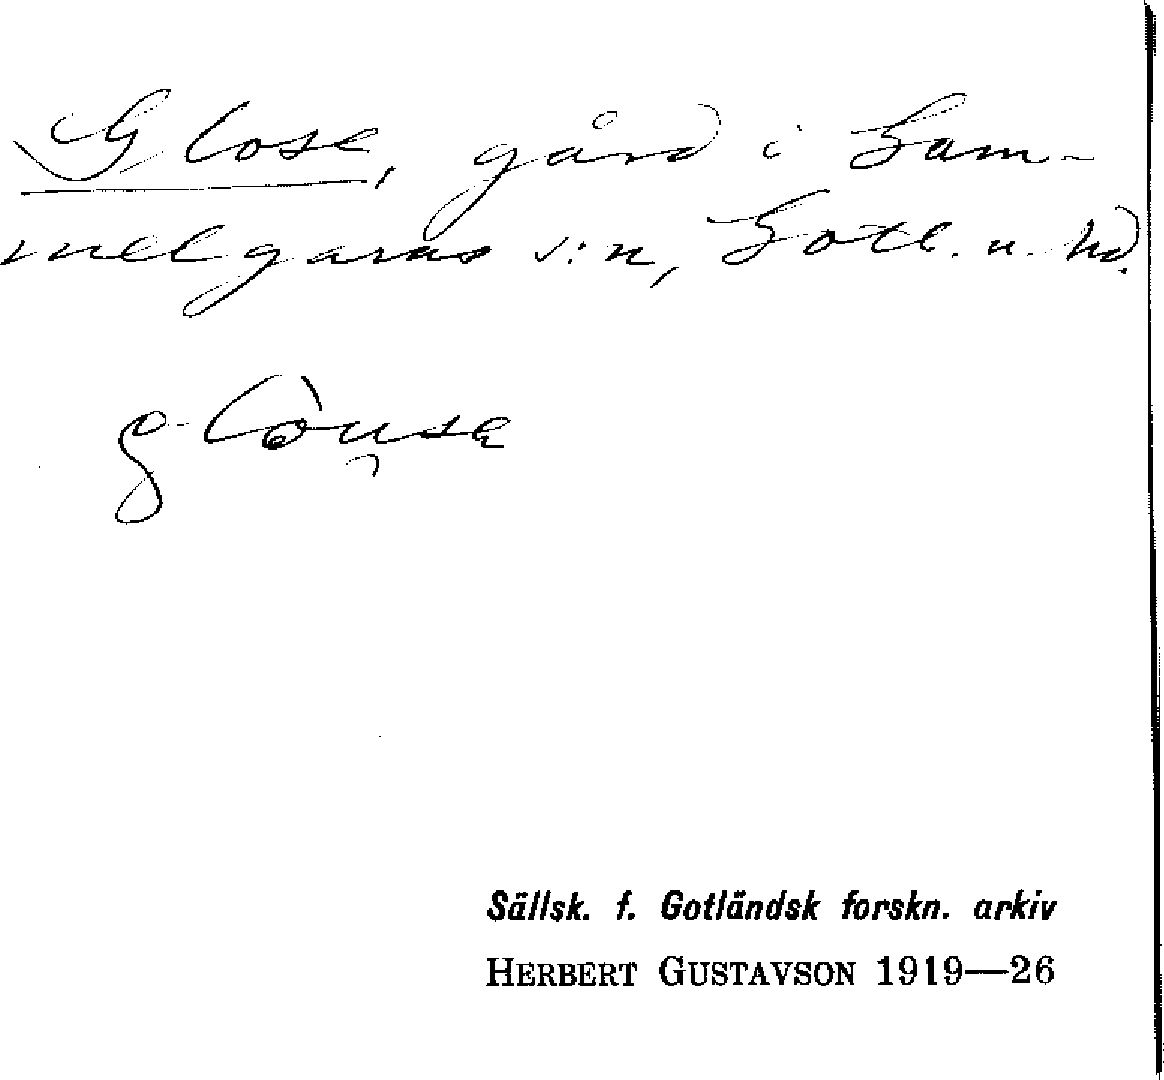 Glose, gård i Gam-
melgarns s:n, Gotl. u. hd.
glòu̯sa
Sällsk. f. Gotländsk forskn. arkiv
HERBERT GUSTAVSON 1919—26